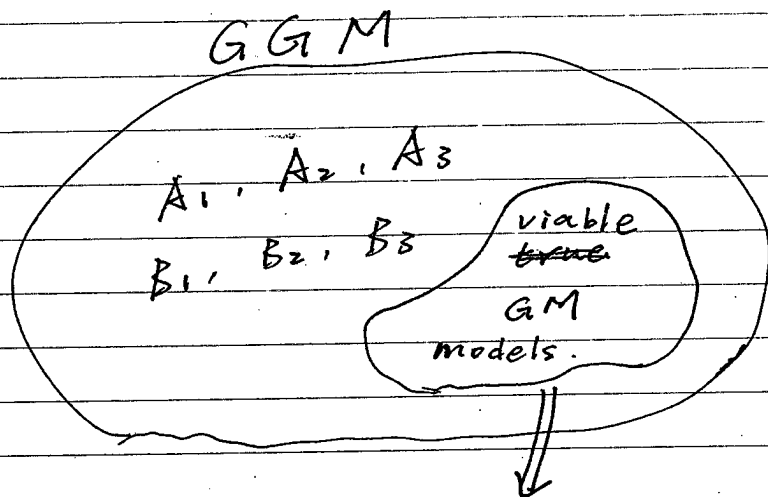 GGM
A₁, A₂, A₃
B₁, B₂, B₃
viable
true
GM
models.